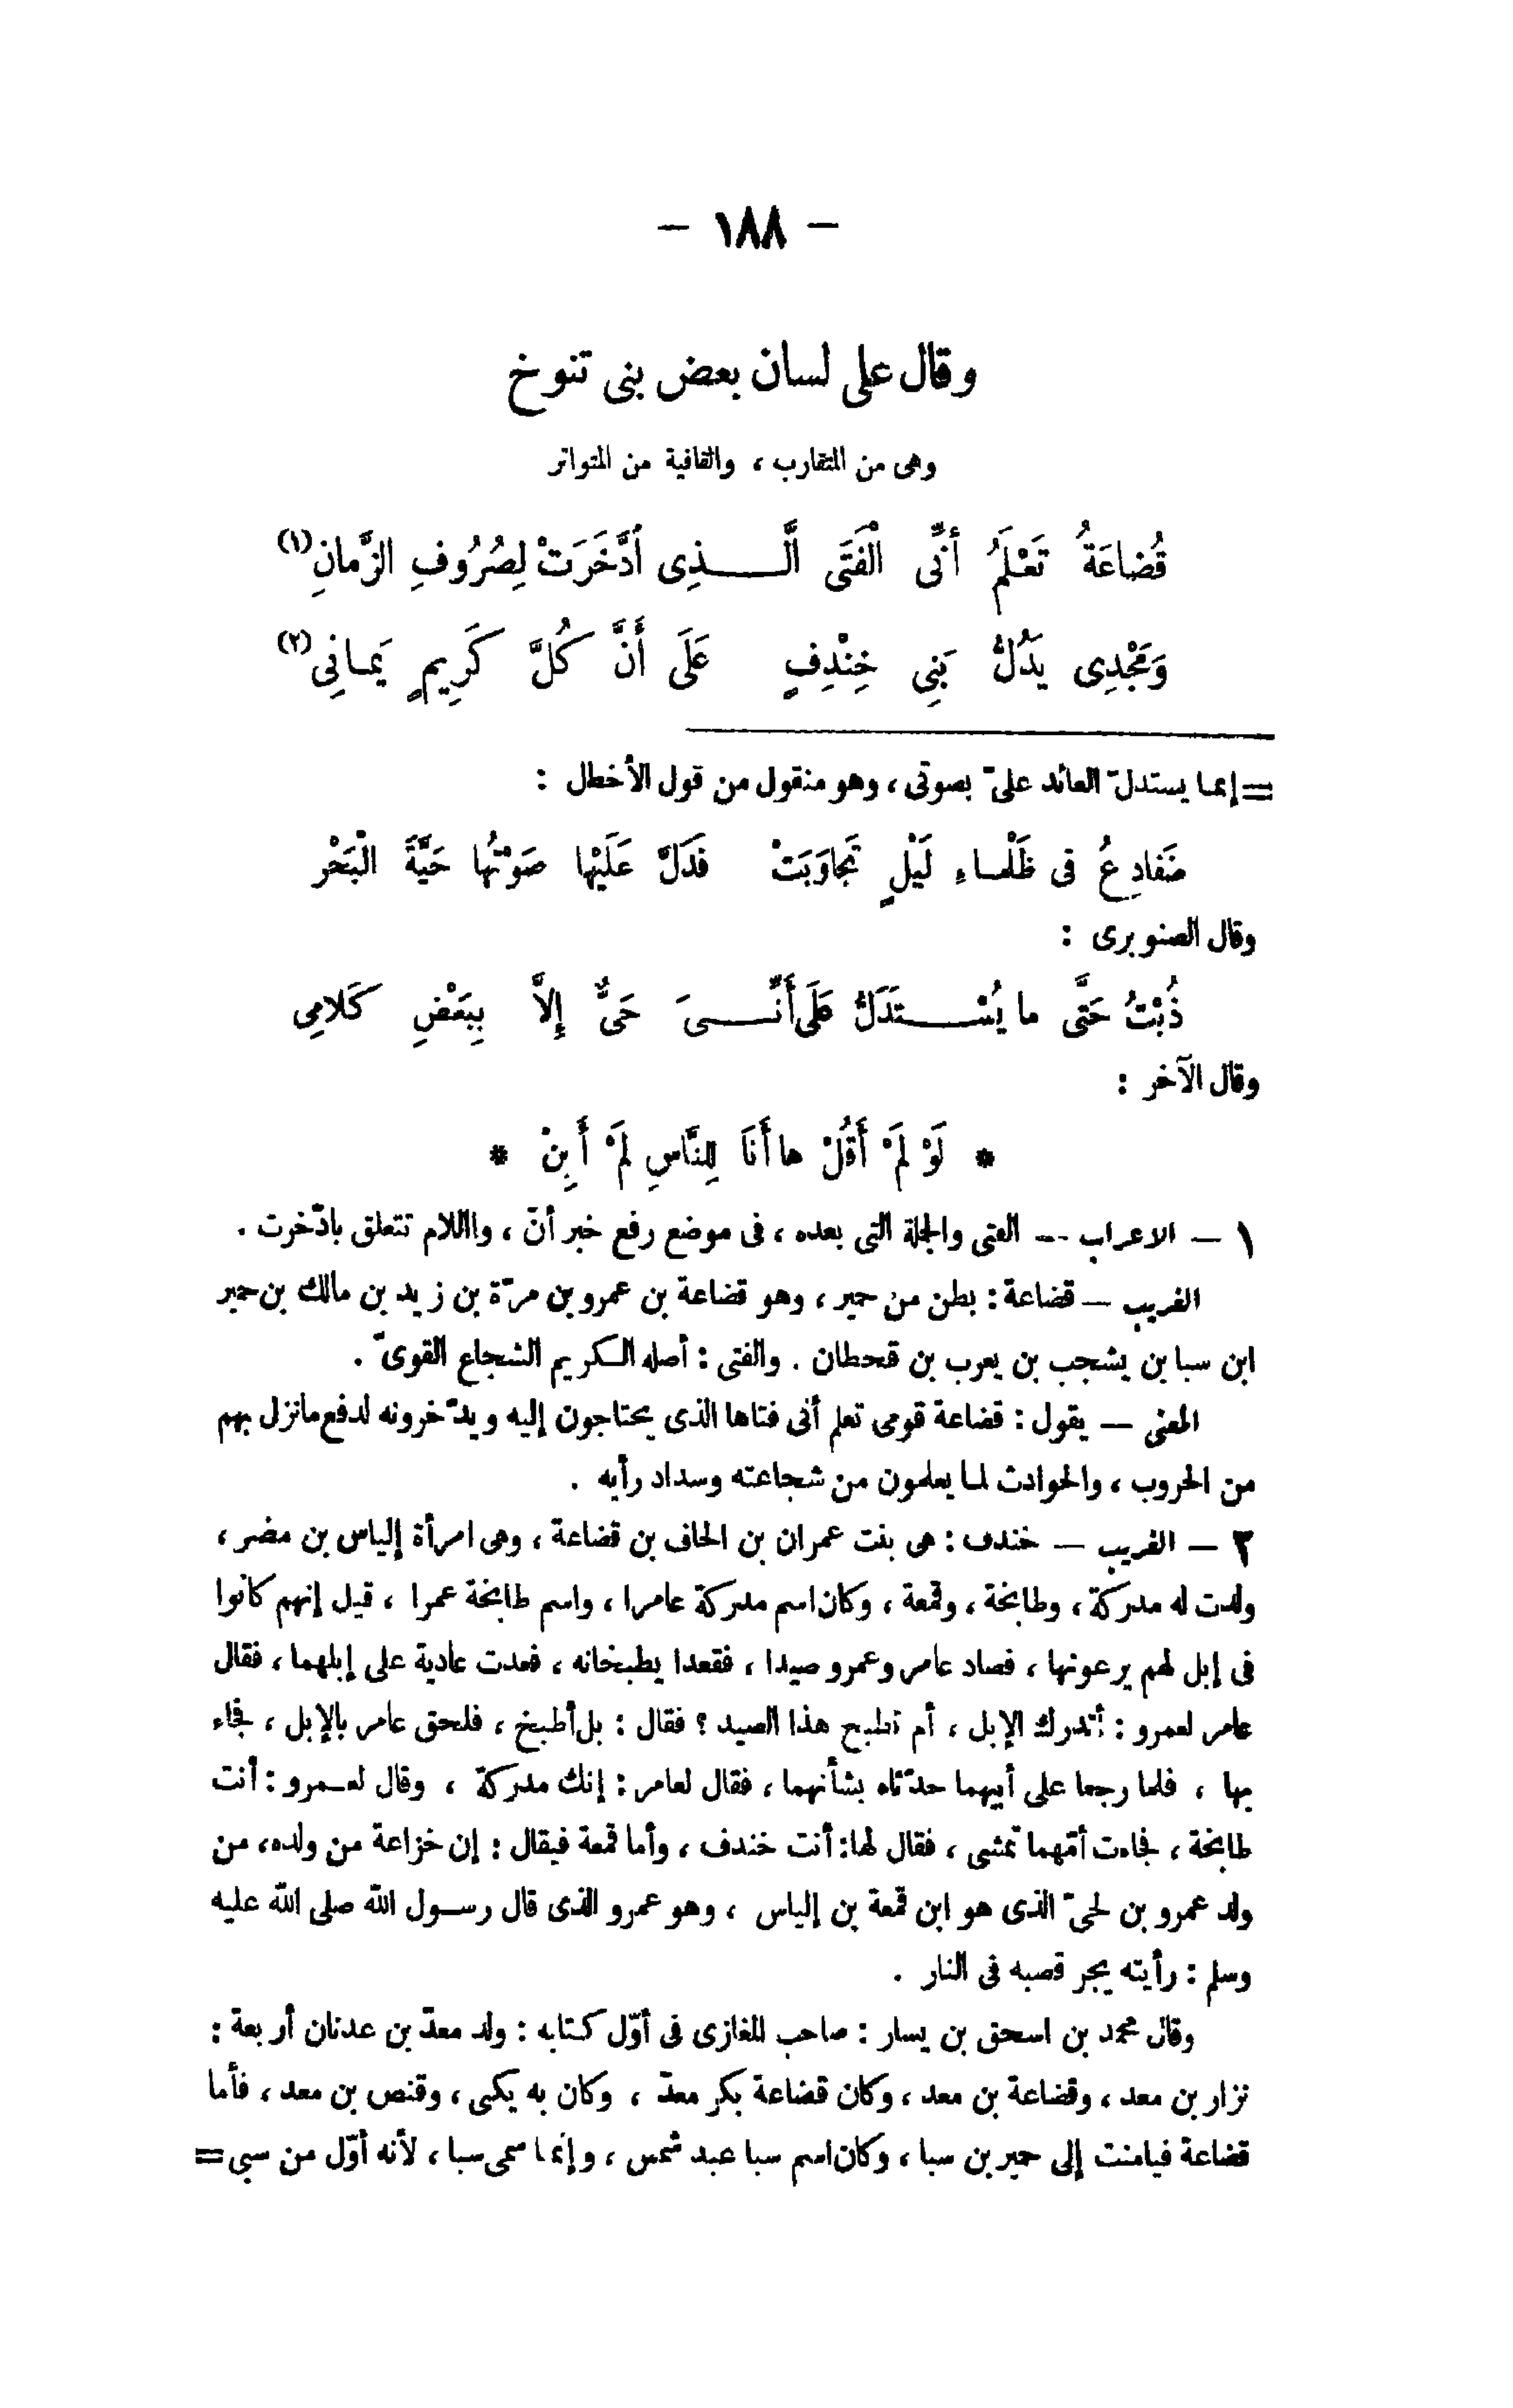 — ١٨٨ —
وقال على لسان بعض بنى تنوخ
وهى من المتقارب ، والقافية من المتواتر
قُضاعَةُ تَعْلَمُ أنِّى الْفَتَى الَّـــذِى ادَّخَرَتْ لِصُرُوفِ الزَّمانِ(١)
وَمَجْدِى يَدُلُّ بَنِى خِنْدِفٍ عَلَى أَنَّ كُلَّ كَرِيمٍ يَمـانِى(٢)
=إنما يستدلّ العائد علىّ بصوتى ، وهو منقول من قول الأخطل :
ضَفادِعُ فى ظَلْمـاءِ لَيْلٍ تَجاوَبَتْ فَدَلَّ عَلَيْها صَوْتُها حَيَّةَ الْبَحْرِ
وقال الصنوبرى :
ذُبْتُ حَتَّى ما يُسْـــتَدَلُّ عَلَى أَنِّـــىَ حَىٌّ إِلاَّ بِبَعْضِ كَلامِى
وقال الآخر :
* لَوْ لَمْ أَقُلْ ها أَنَا لِلنَّاسِ لَمْ أَبِنْ *
١ — الاعراب -- الفتى والجملة التى بعده ، فى موضع رفع خبر أنّ ، واللام تتعلق بادّخرت .
الغريب — قضاعة : بطن من حمير ، وهو قضاعة بن عمرو بن مرّة بن زيد بن مالك بن حمير
ابن سبا بن يشجب بن يعرب بن قحطان . والفتى : أصله الكريم الشجاع القوىّ .
المعنى — يقول : قضاعة قومى تعلم أنى فتاها الذى يحتاجون إليه ويدّخرونه لدفع مانزل بهم
من الحروب ، والحوادث لما يعلمون من شجاعته وسداد رأيه .
٢ — الغريب — خندف : هى بنت عمران بن الحاف بن قضاعة ، وهى امرأة إلياس بن مضر ،
ولدت له مدركة ، وطابخة ، وقمعة ، وكان اسم مدركة عامرا ، واسم طابخة عمرا ، قيل إنهم كانوا
فى إبل لهم يرعونها ، فصاد عامر وعمرو صيدا ، فقعدا يطبخانه ، فعدت عادية على إبلهما ، فقال
عامر لعمرو : أتدرك الإبل ، أم تطبخ هذا الصيد ؟ فقال : بل أطبخ ، فلحق عامر بالإبل ، فجاء
بها ، فلما رجعا على أبيهما حدّثاه بشأنهما ، فقال لعامر : إنك مدركة ، وقال لعـمرو : أنت
طابخة ، فجاءت أمّهما تمشى ، فقال لها: أنت خندف ، وأما قمعة فيقال : إن خزاعة من ولده، من
ولد عمرو بن لحىّ الذى هو ابن قمعة بن إلياس ، وهو عمرو الذى قال رسـول الله صلى الله عليه
وسلم : رأيته يجر قصبه فى النار .
وقال محمد بن اسحق بن يسار : صاحب المغازى فى أوّل كتابه : ولد معدّ بن عدنان أربعة :
نزار بن معد ، وقضاعة بن معد ، وكان قضاعة بكر معدّ ، وكان به يكنى ، وقنص بن معد ، فأما
قضاعة فيامنت إلى حمير بن سبا ، وكان اسم سبا عبد شمس ، وإنما سمى سبا ، لأنه أوّل من سبي=